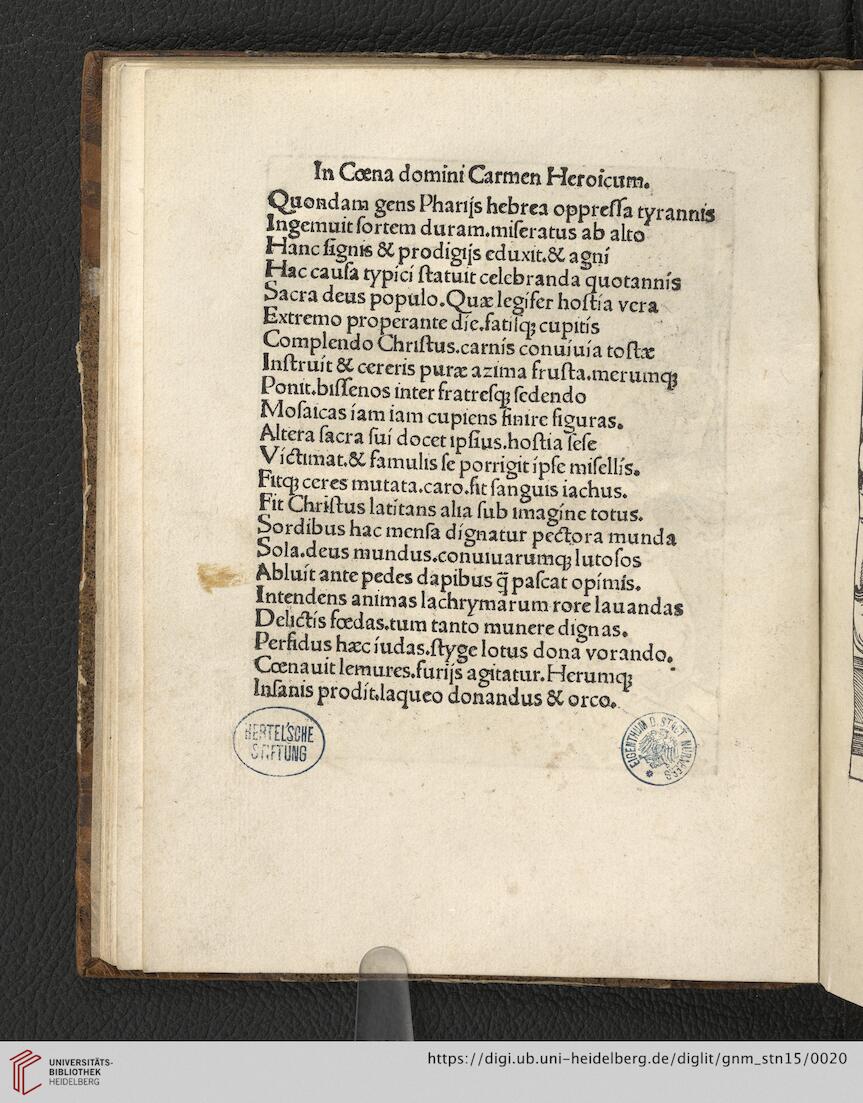 In Cœna domini Carmen Heroicum.
Quondam gens Pharijs hebrea oppreſſa tyrannis
Ingemuit ſortem duram.miſeratus ab alto
Hanc ſignis & prodigijs eduxit.& agni
Hac cauſa typici ſtatuit celebranda quotannis
Sacra deus populo.Quæ legifer hoſtia vera
Extremo properante die.fatiſqꝫ cupitis
Complendo Chriſtus.carnis conuiuia toſtæ
Inſtruit & cereris puræ azima fruſta.merumqꝫ
Ponit.biſſenos inter fratreſqꝫ ſedendo
Moſaicas iam iam cupiens finire figuras.
Altera ſacra ſui docet ipſius.hoſtia ſeſe
Victimat.& famulis ſe porrigit ipſe miſellis.
Fitqꝫ ceres mutata.caro.fit ſanguis iachus.
Fit Chriſtus latitans alia ſub imagine totus.
Sordibus hac menſa dignatur pectora munda
Sola.deus mundus.conuiuarumqꝫ lutoſos
Abluit ante pedes dapibus q̃ paſcat opimis.
Intendens animas lachrymarum rore lauandas
Delictis fœdas.tum tanto munere dignas.
Perfidus hæc iudas.ſtyge lotus dona vorando.
Cœnauit lemures.furijs agitatur.Herumqꝫ
Inſanis prodit.laqueo donandus & orco.
HERTEL'SCHE
STIFTUNG
EIGENTHUM D. STADT NÜRNBERG
UNIVERSITÄTS-
BIBLIOTHEK
HEIDELBERG
https://digi.ub.uni-heidelberg.de/diglit/gnm_stn15/0020